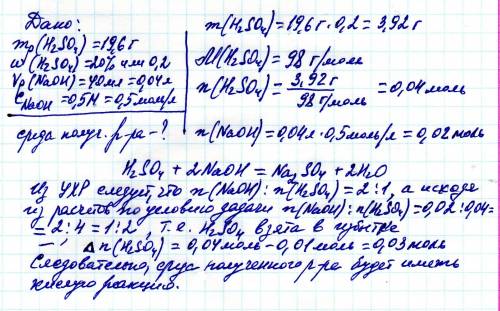 Дано:
mр(H₂SO₄)=19,6г
ω(H₂SO₄)=20% или 0,2
Vр(NaOH)=40мл=0,04л
C NaOH=0,5М=0,5моль/л
среда получ. р-ра-?
m(H₂SO₄)=19,6г·0,2=3,92г
M(H₂SO₄)=98 г/моль
n(H₂SO₄)=3,92г/98 г/моль=0,04моль
n(NaOH)=0,04л·0,5моль/л=0,02моль
H₂SO₄+2NaOH=Na₂SO₄+2H₂O
Из УХР следует, что n(NaOH):n(H₂SO₄)=2:1, а исходя
из расчетов по условию задачи n(NaOH):n(H₂SO₄)=0,02:0,04=
=2:4=1:2, т.е. H₂SO₄ взята в избытке
Δn(H₂SO₄)=0,04моль-0,01моль=0,03моль
Следовательно, среда полученного р-ра будет иметь
кислую реакцию.